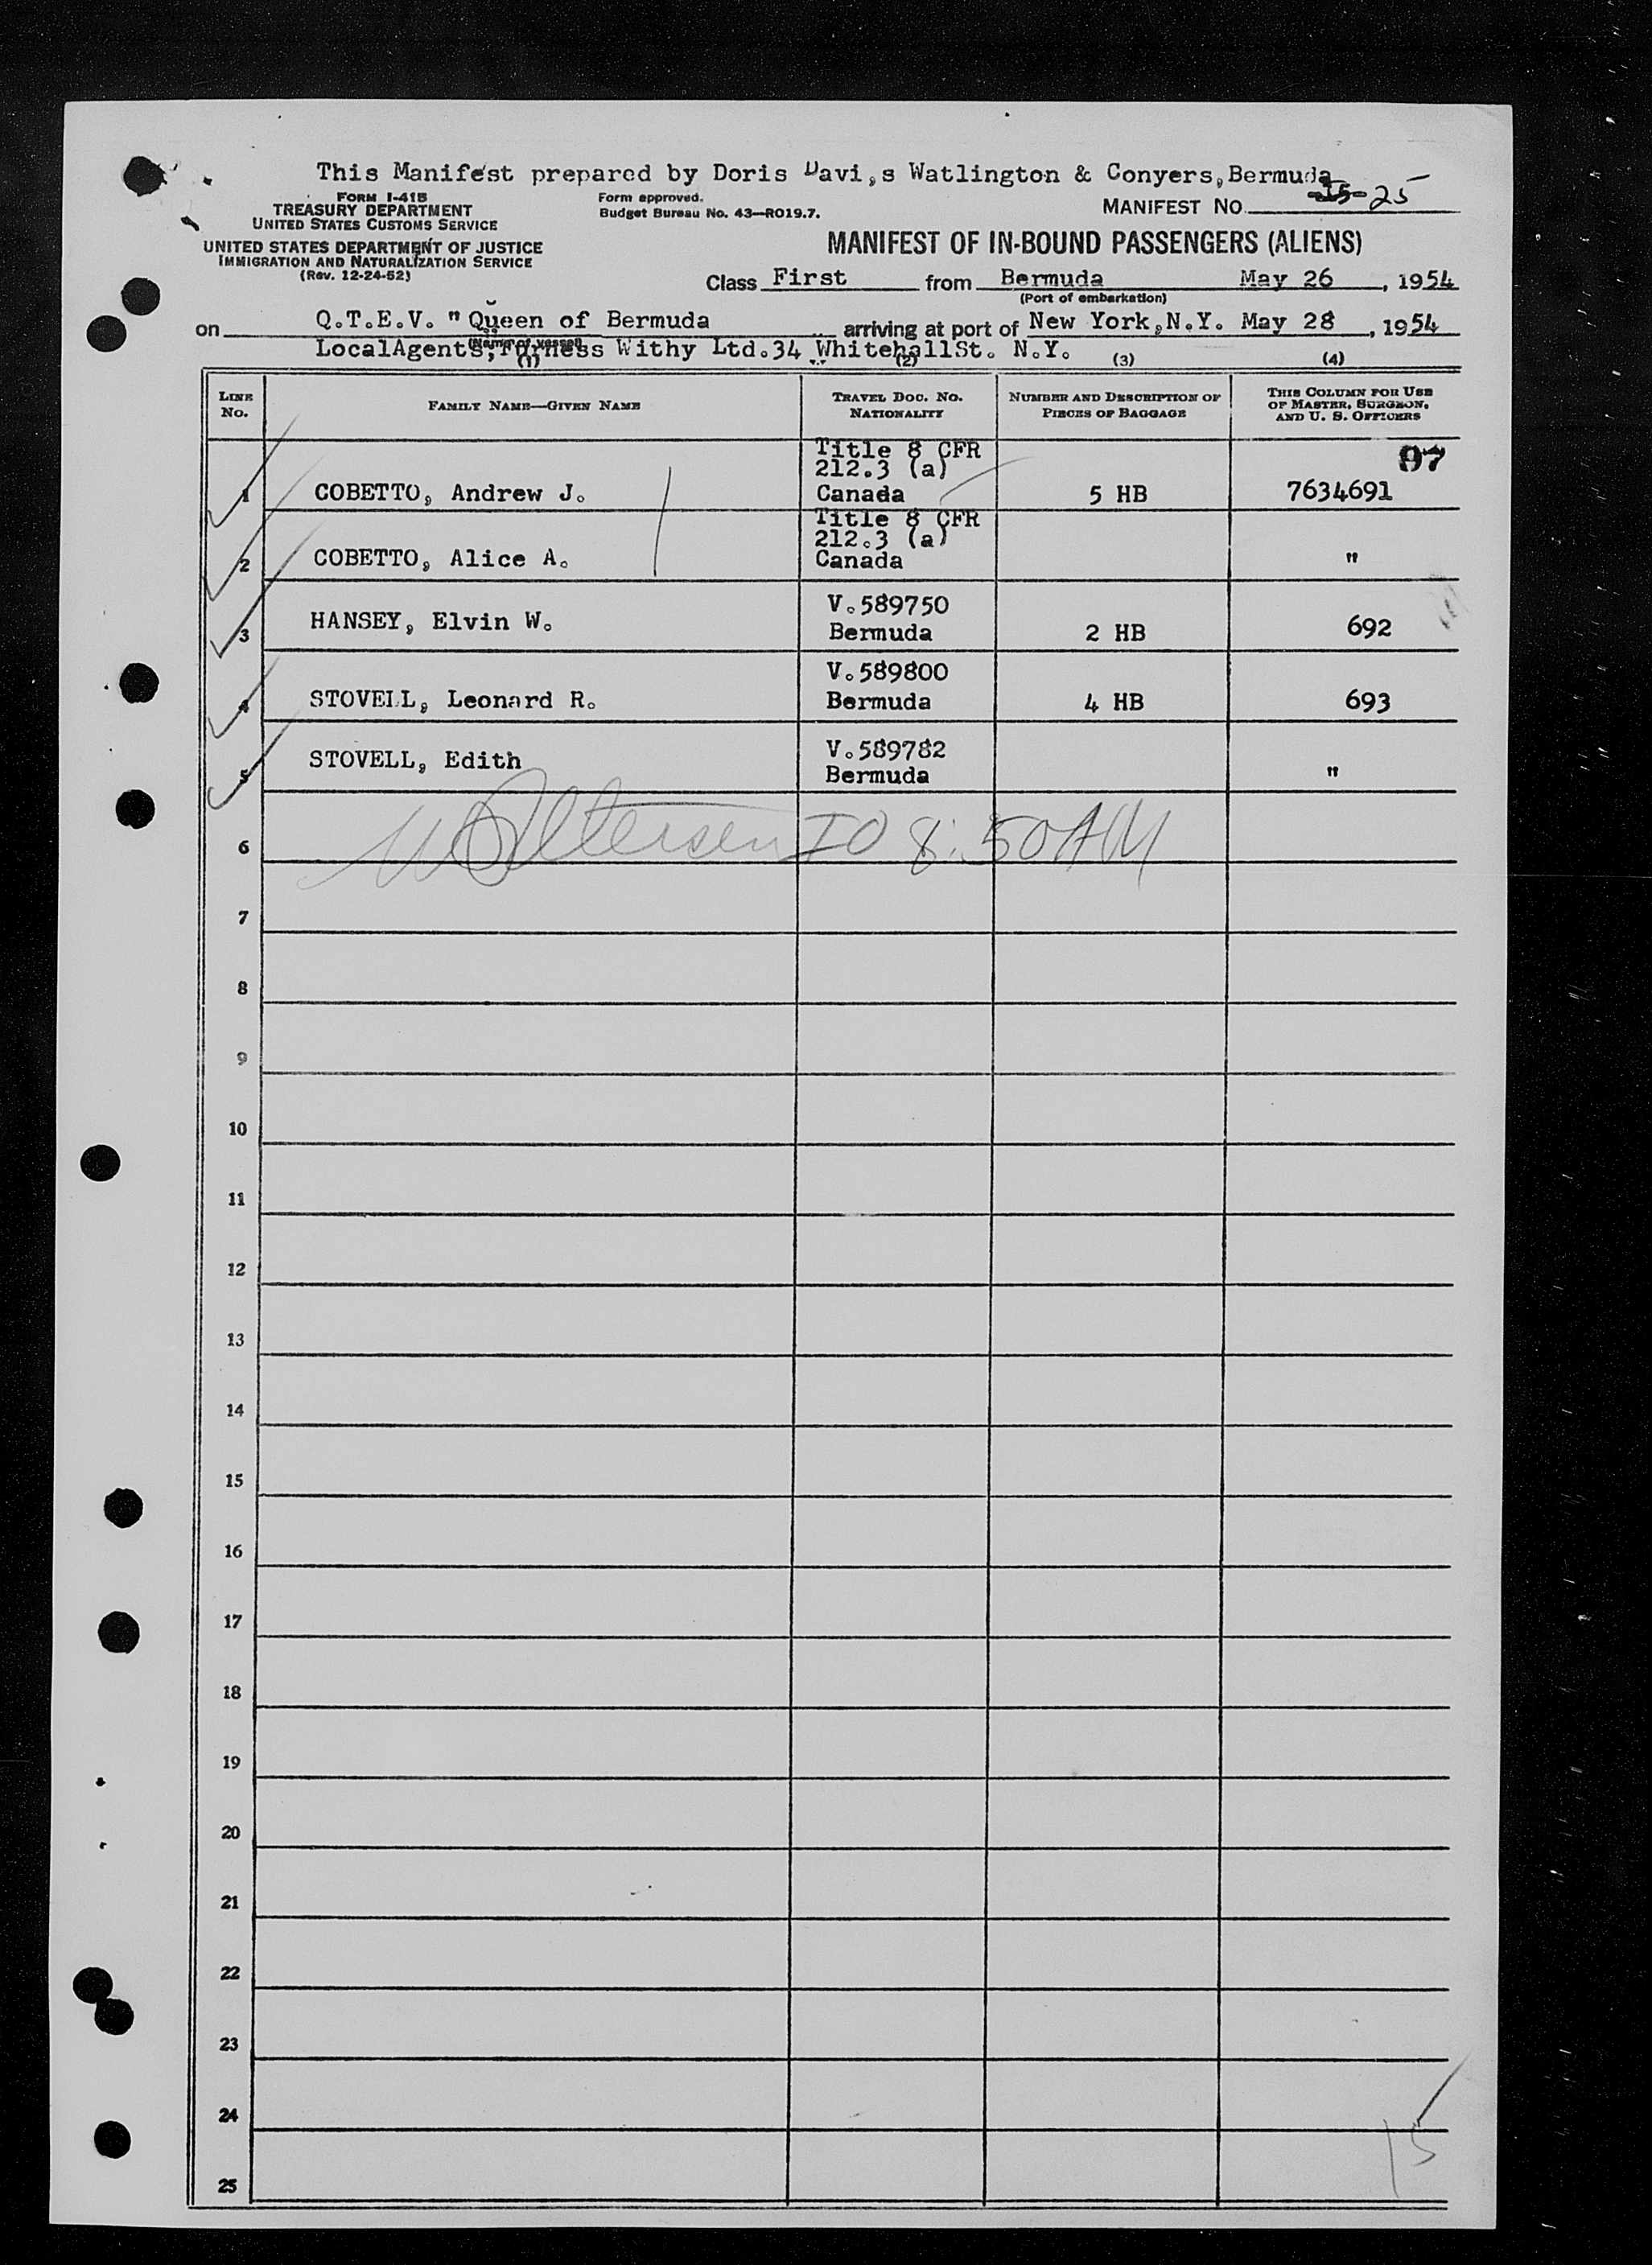 This Manifest prepared by Doris Davi,s Watlington & Conyers,Bermuda
FORM I-415
TREASURY DEPARTMENT
UNITED STATES CUSTOMS SERVICE
UNITED STATES DEPARTMENT OF JUSTICE
IMMIGRATION AND NATURALIZATION SERVICE
(Rev. 12-24-52)
Form approved.
Budget Bureau No. 43—R019.7.
MANIFEST NO. 25
MANIFEST OF IN-BOUND PASSENGERS (ALIENS)
Class First from Bermuda May 26, 1954
(Port of embarkation)
on Q.T.E.V. " Queen of Bermuda arriving at port of New York,N.Y. May 28, 1954
(Name of vessel)
LocalAgents;Furness Withy Ltd.34 WhitehallSt. N.Y.
(1) (2) (3) (4)
LINE No. FAMILY NAME—GIVEN NAME TRAVEL DOC. NO. NATIONALITY NUMBER AND DESCRIPTION OF PIECES OF BAGGAGE THIS COLUMN FOR USE OF MASTER, SURGEON, AND U. S. OFFICERS
97
Title 8 CFR
212.3 (a)
1 COBETTO, Andrew J. Canada 5 HB 7634691
Title 8 CFR
212.3 (a)
2 COBETTO, Alice A. Canada "
V.589750
3 HANSEY, Elvin W. Bermuda 2 HB 692
V.589800
4 STOVELL, Leonard R. Bermuda 4 HB 693
V.589782
5 STOVELL, Edith Bermuda "
6 IO 8:50AM
7
8
9
10
11
12
13
14
15
16
17
18
19
20
21
22
23
24
15
25